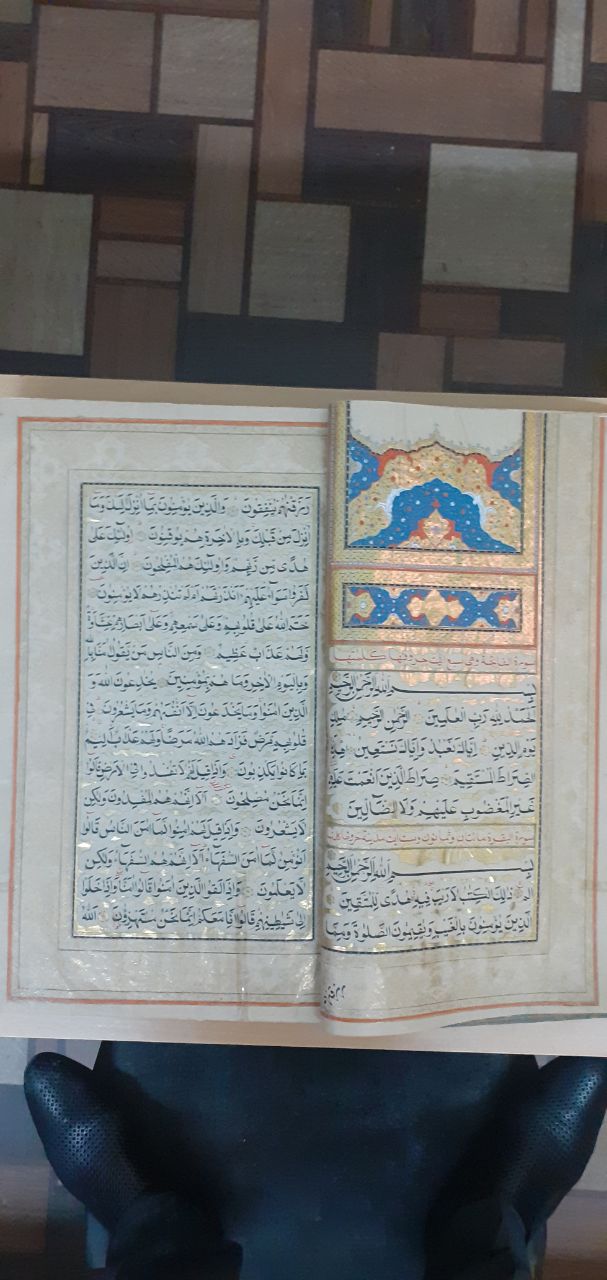 سورة الفاتحة وهي سبع آيات
بسم الله الرحمن الرحيم
الحمد لله رب العلمين الرحمن الرحيم ملك
يوم الدين اياك نعبد واياك نستعين اهدنا
الصراط المستقيم صراط الذين انعمت عليهم
غير المغضوب عليهم ولا الضالين
سورة البقرة مائتان وثمانون وست ايات مدنية
بسم الله الرحمن الرحيم
الم ذلك الكتب لا ريب فيه هدى للمتقين
الذين يؤمنون بالغيب ويقيمون الصلوة ومما
رزقنهم ينفقون والذين يؤمنون بما انزل اليك وما
انزل من قبلك وبالاخرة هم يوقنون اولئك على
هدى من ربهم واولئك هم المفلحون ان الذين
كفروا سواء عليهم ءانذرتهم ام لم تنذرهم لا يؤمنون
ختم الله على قلوبهم وعلى سمعهم وعلى ابصارهم غشاوة
ولهم عذاب عظيم ومن الناس من يقول امنا بالله
وباليوم الاخر وما هم بمؤمنين يخدعون الله و
الذين امنوا وما يخدعون الا انفسهم وما يشعرون في
قلوبهم مرض فزادهم الله مرضا ولهم عذاب اليم
بما كانوا يكذبون واذا قيل لهم لا تفسدوا في الارض قالوا
انما نحن مصلحون الا انهم هم المفسدون ولكن
لا يشعرون واذا قيل لهم امنوا كما امن الناس قالوا
انؤمن كما امن السفهاء الا انهم هم السفهاء ولكن
لا يعلمون واذا لقوا الذين امنوا قالوا امنا واذا خلوا
الى شيطينهم قالوا انا معكم انما نحن مستهزؤن الله